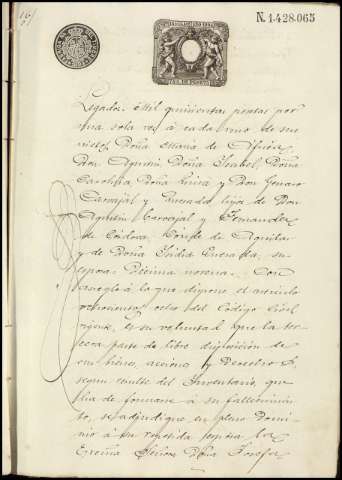 N. 1.428.065
Legado: Mil quinientas pesetas por
una sola vez á cada uno de sus
nietos, Doña Maria de Africa,
Don Agustin, Doña Isabel, Doña
Carolina, Doña Luisa y Don Genaro
Carvajal y Quesada hijos de Don
Agustin Carvajal y Fernandez
de Córdova, Conde de Aguilar
y de Doña Isidra Quesada, su
esposa. Décima novena. Con
arreglo á lo que dispone el articulo
ochocientos ocho del Código Civil
vigente, es su voluntad que la ter-
cera parte de libre disposicion de
sus bienes, acciones y Derechos
segun resulte del Inventario, que
ha de formarse á su fallecimien-
to, se adjudique en pleno Domi-
nio á su repetida esposa la
Excma Señora Doña Josefa